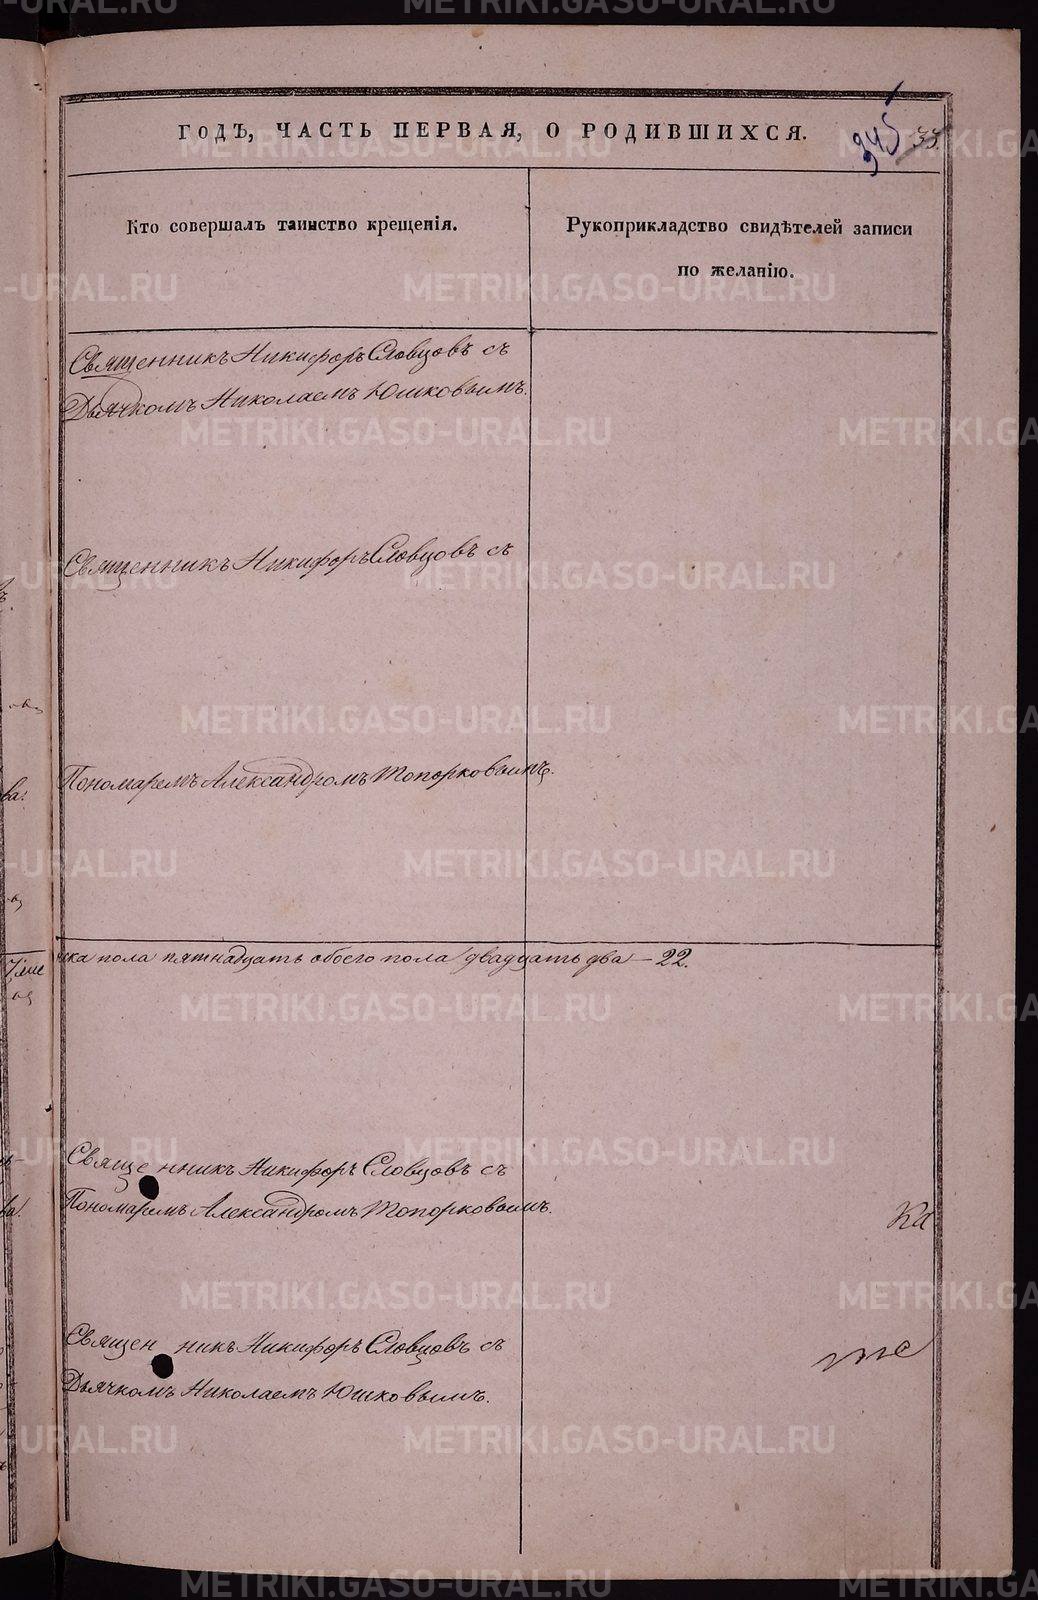 ГОДЪ, ЧАСТЬ ПЕРВАЯ, О РОДИВШИХСЯ.
345
33
Кто совершалъ таинство крещенія.
Рукоприкладство свидѣтелей записи
по желанію.
Священникъ Никифоръ Словцовъ съ
Дьячкомъ Николаемъ Юшковымъ.
Священникъ Никифоръ Словцовъ съ
Пономаремъ Александромъ Топорковымъ.
ска пола пятнадцать обоего пола двадцать два – 22.
Священникъ Никифоръ Словцовъ съ
Пономаремъ Александромъ Топорковымъ.
Ка
Священникъ Никифоръ Словцовъ съ
Дьячкомъ Николаемъ Юшковымъ.
METRIKI.GASO-URAL.RU